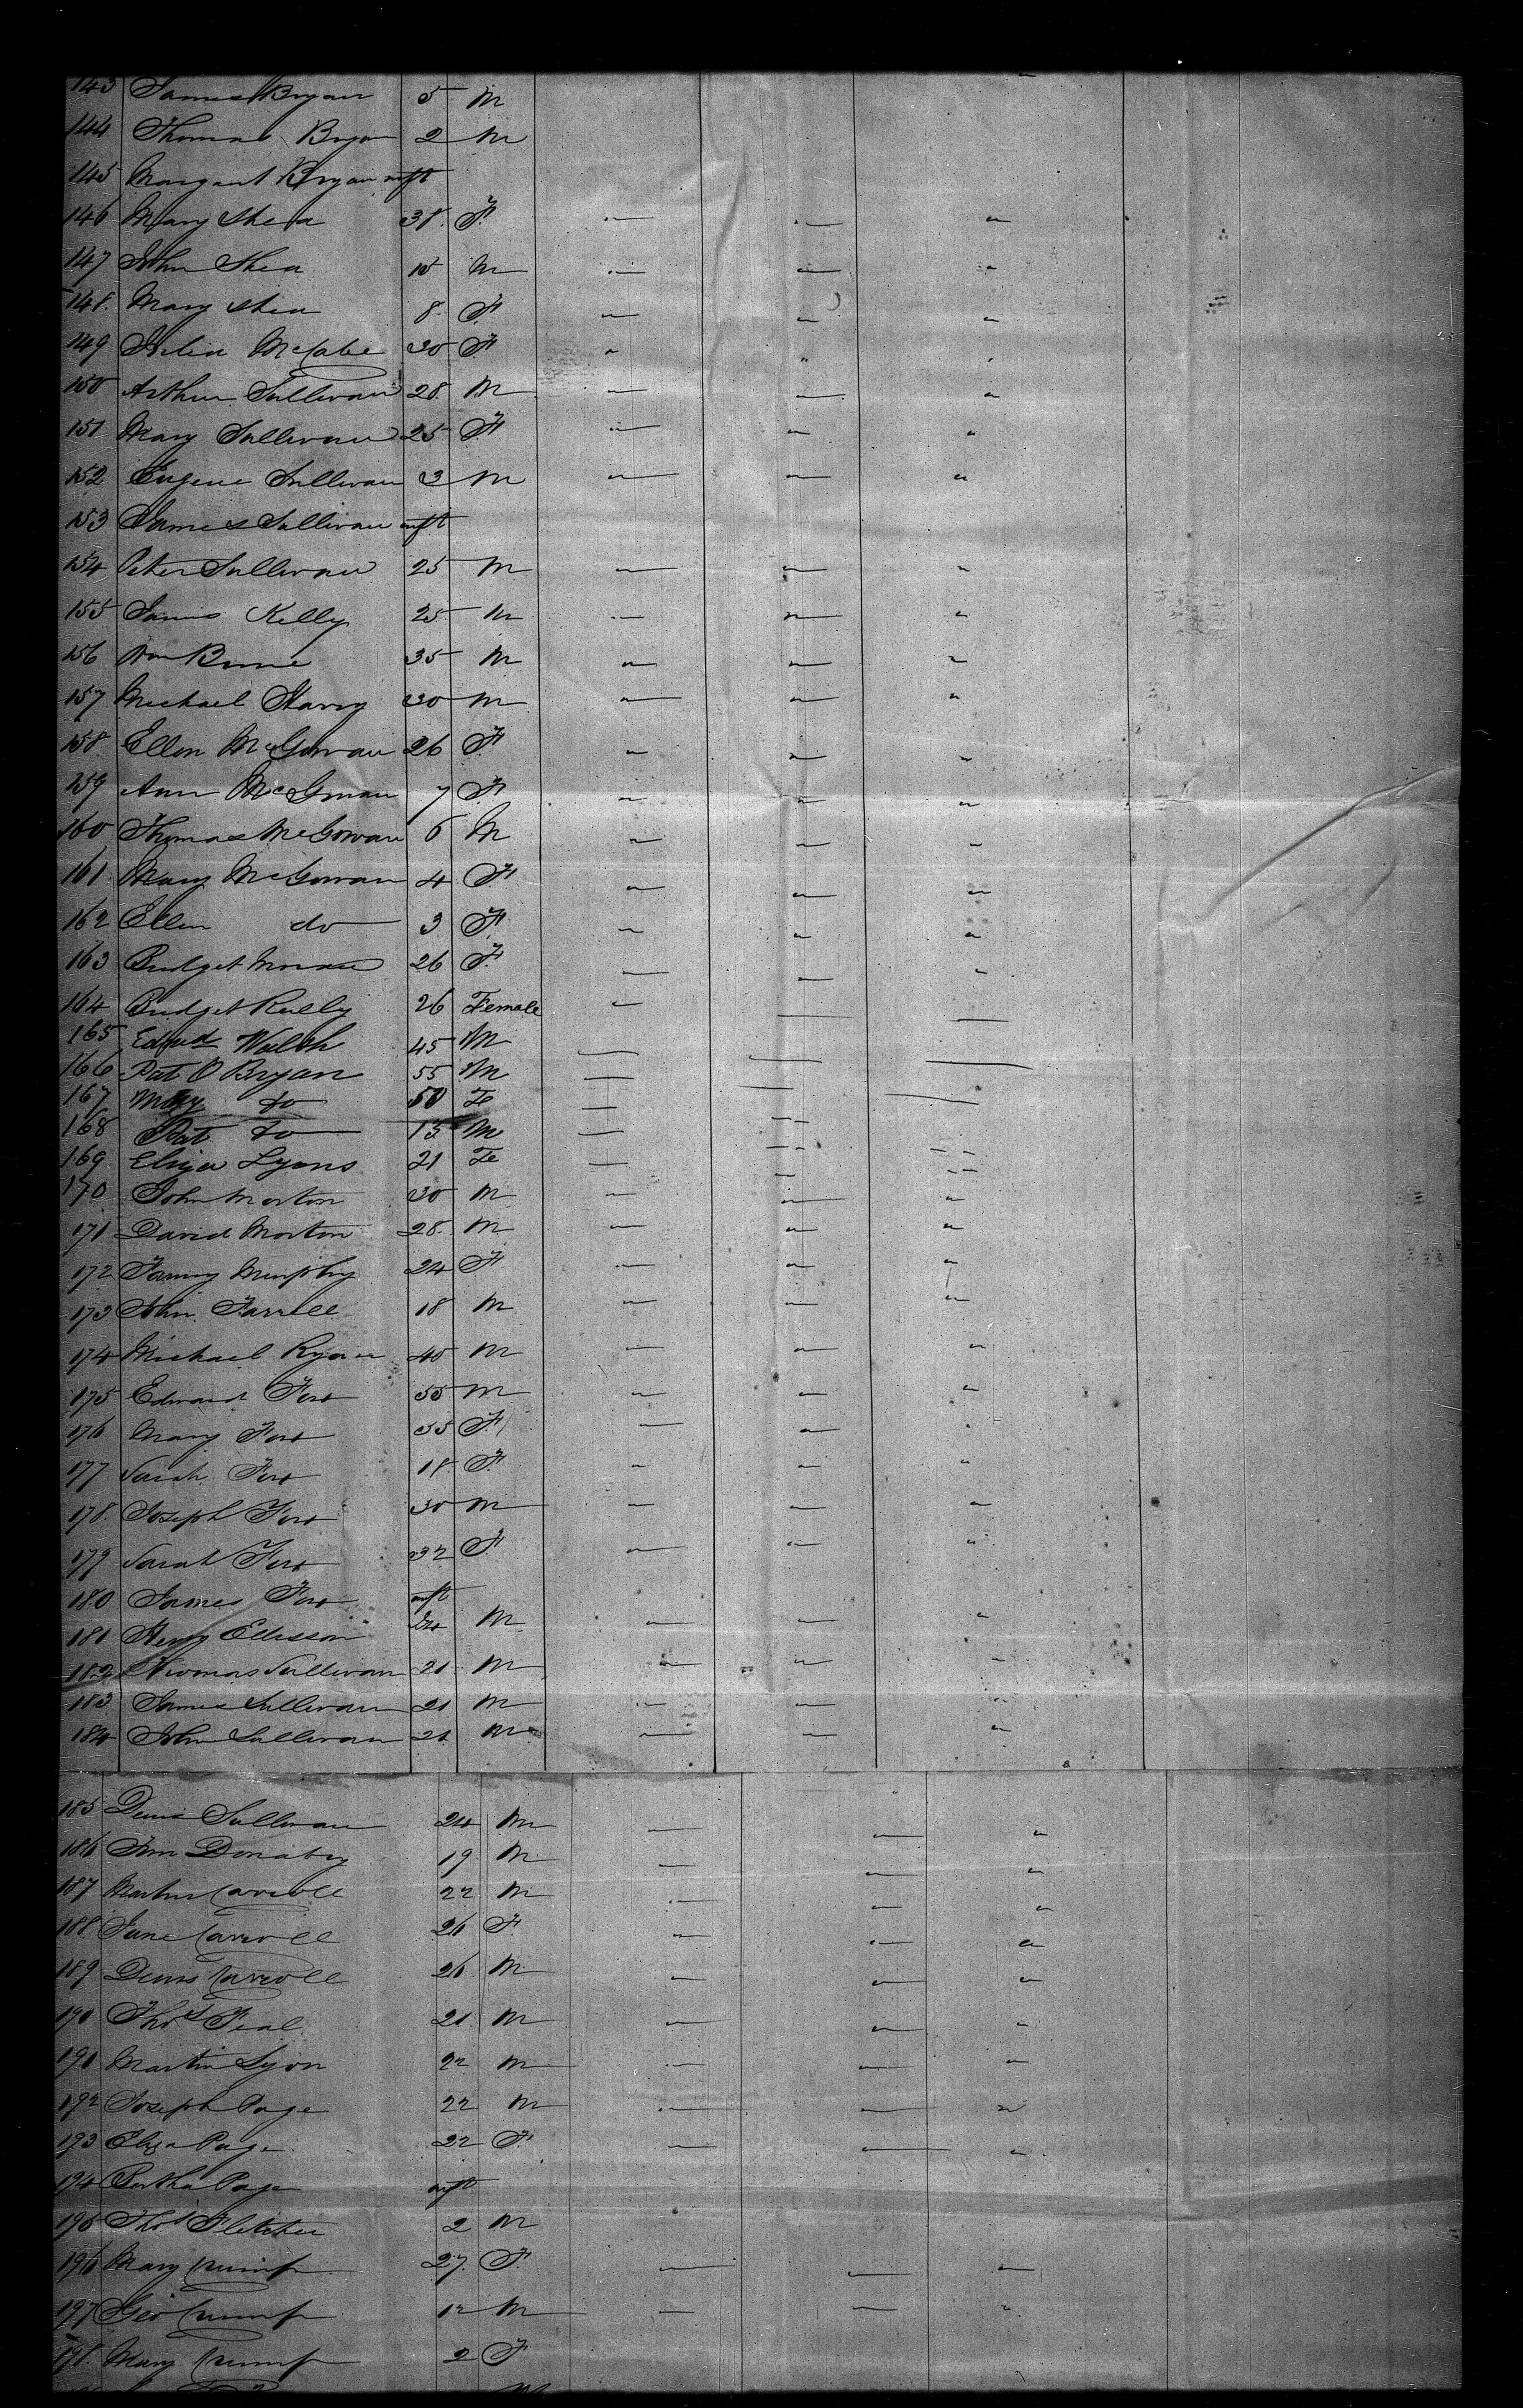 143 James Bryan 5 M
144 Thomas Bryan 2 M
145 Margaret Bryan inft
146 Mary Shea 38 F. " " "
147 John Shea 10 M " " "
148. Mary Shea 8. F. " " "
149 Julia McCabe 30 F " " "
150 Arthur Sullivan 28. M " " "
151 Mary Sullivan 25 F " " "
152 Eugene Sullivan 3 M " " "
153 James Sullivan inft
154 Peter Sullivan 25 M " " "
155 James Kelly 25 M " " "
156 Wm 35 M " " "
157 Michael 30 M " " "
158 Ellen McGowan 26 F. " " "
159 Ann McGowan 7 F. " " "
160 Thomas McGowan 6 M " " "
161 Mary McGowan 4 F. " " "
162 Ellen do 3 F. " " "
163 Bridget Moran 26 F. " " "
164 Bridget Reilly 26 Female "
165 Edwd Walsh 45 M
166 Pat O Bryan 55 M
167 Mary do 50 Fe
168 Pat do 13 M
169 Eliza Lyons 21 Fe
170 John Morton 30 M " " "
171 David Morton 28. M " " "
172 Fanny Murphy 24 F " " "
173 John Farrell 18 M " " "
174 Michael Ryan 40 M " " "
175 Edward 55 M " " "
176 Mary 55 F. " " "
177 Sarah 18. F. " " "
178. Joseph 30 M " " "
179 Sarah 32 F. " " "
180 James inft
181 Henry Ellisson 24 M " " "
182 Thomas Sullivan 21 M " " "
183 James Sullivan 21 M " " "
184 John Sullivan 21 M " " "
185 Denis Sullivan 24 M " " "
186 19 M " " "
187 Martin Carroll 22 M " " "
188. Jane Carroll 26 F. " " "
189 Denis Carroll 26 M " " "
190 Thos 21 M " " "
191 Martin Lyon 22 M " " "
192 Joseph Page 22 M " " "
193 Eliza Page 22 F. " " "
194 Bertha Page inft
195 Thos Fletcher 2 M
196 Mary Crump 27. F. " " "
197 Geo Crump 12 M " " "
198. Mary Crump 2 F